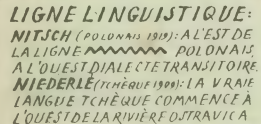 LIGNE LINGUISTIQUE:
NITSCH (POLONAIS 1919): A L'EST DE
LA LIGNE POLONAIS,
A L'OUEST DIALECTE TRANSITOIRE.
NIEDERLĖ (TCHÈQUE 1909): LA VRAIE
LANGUE TCHÈQUE COMMENCE À
L'OUEST DE LA RIVIÈRE OSTRAVICA